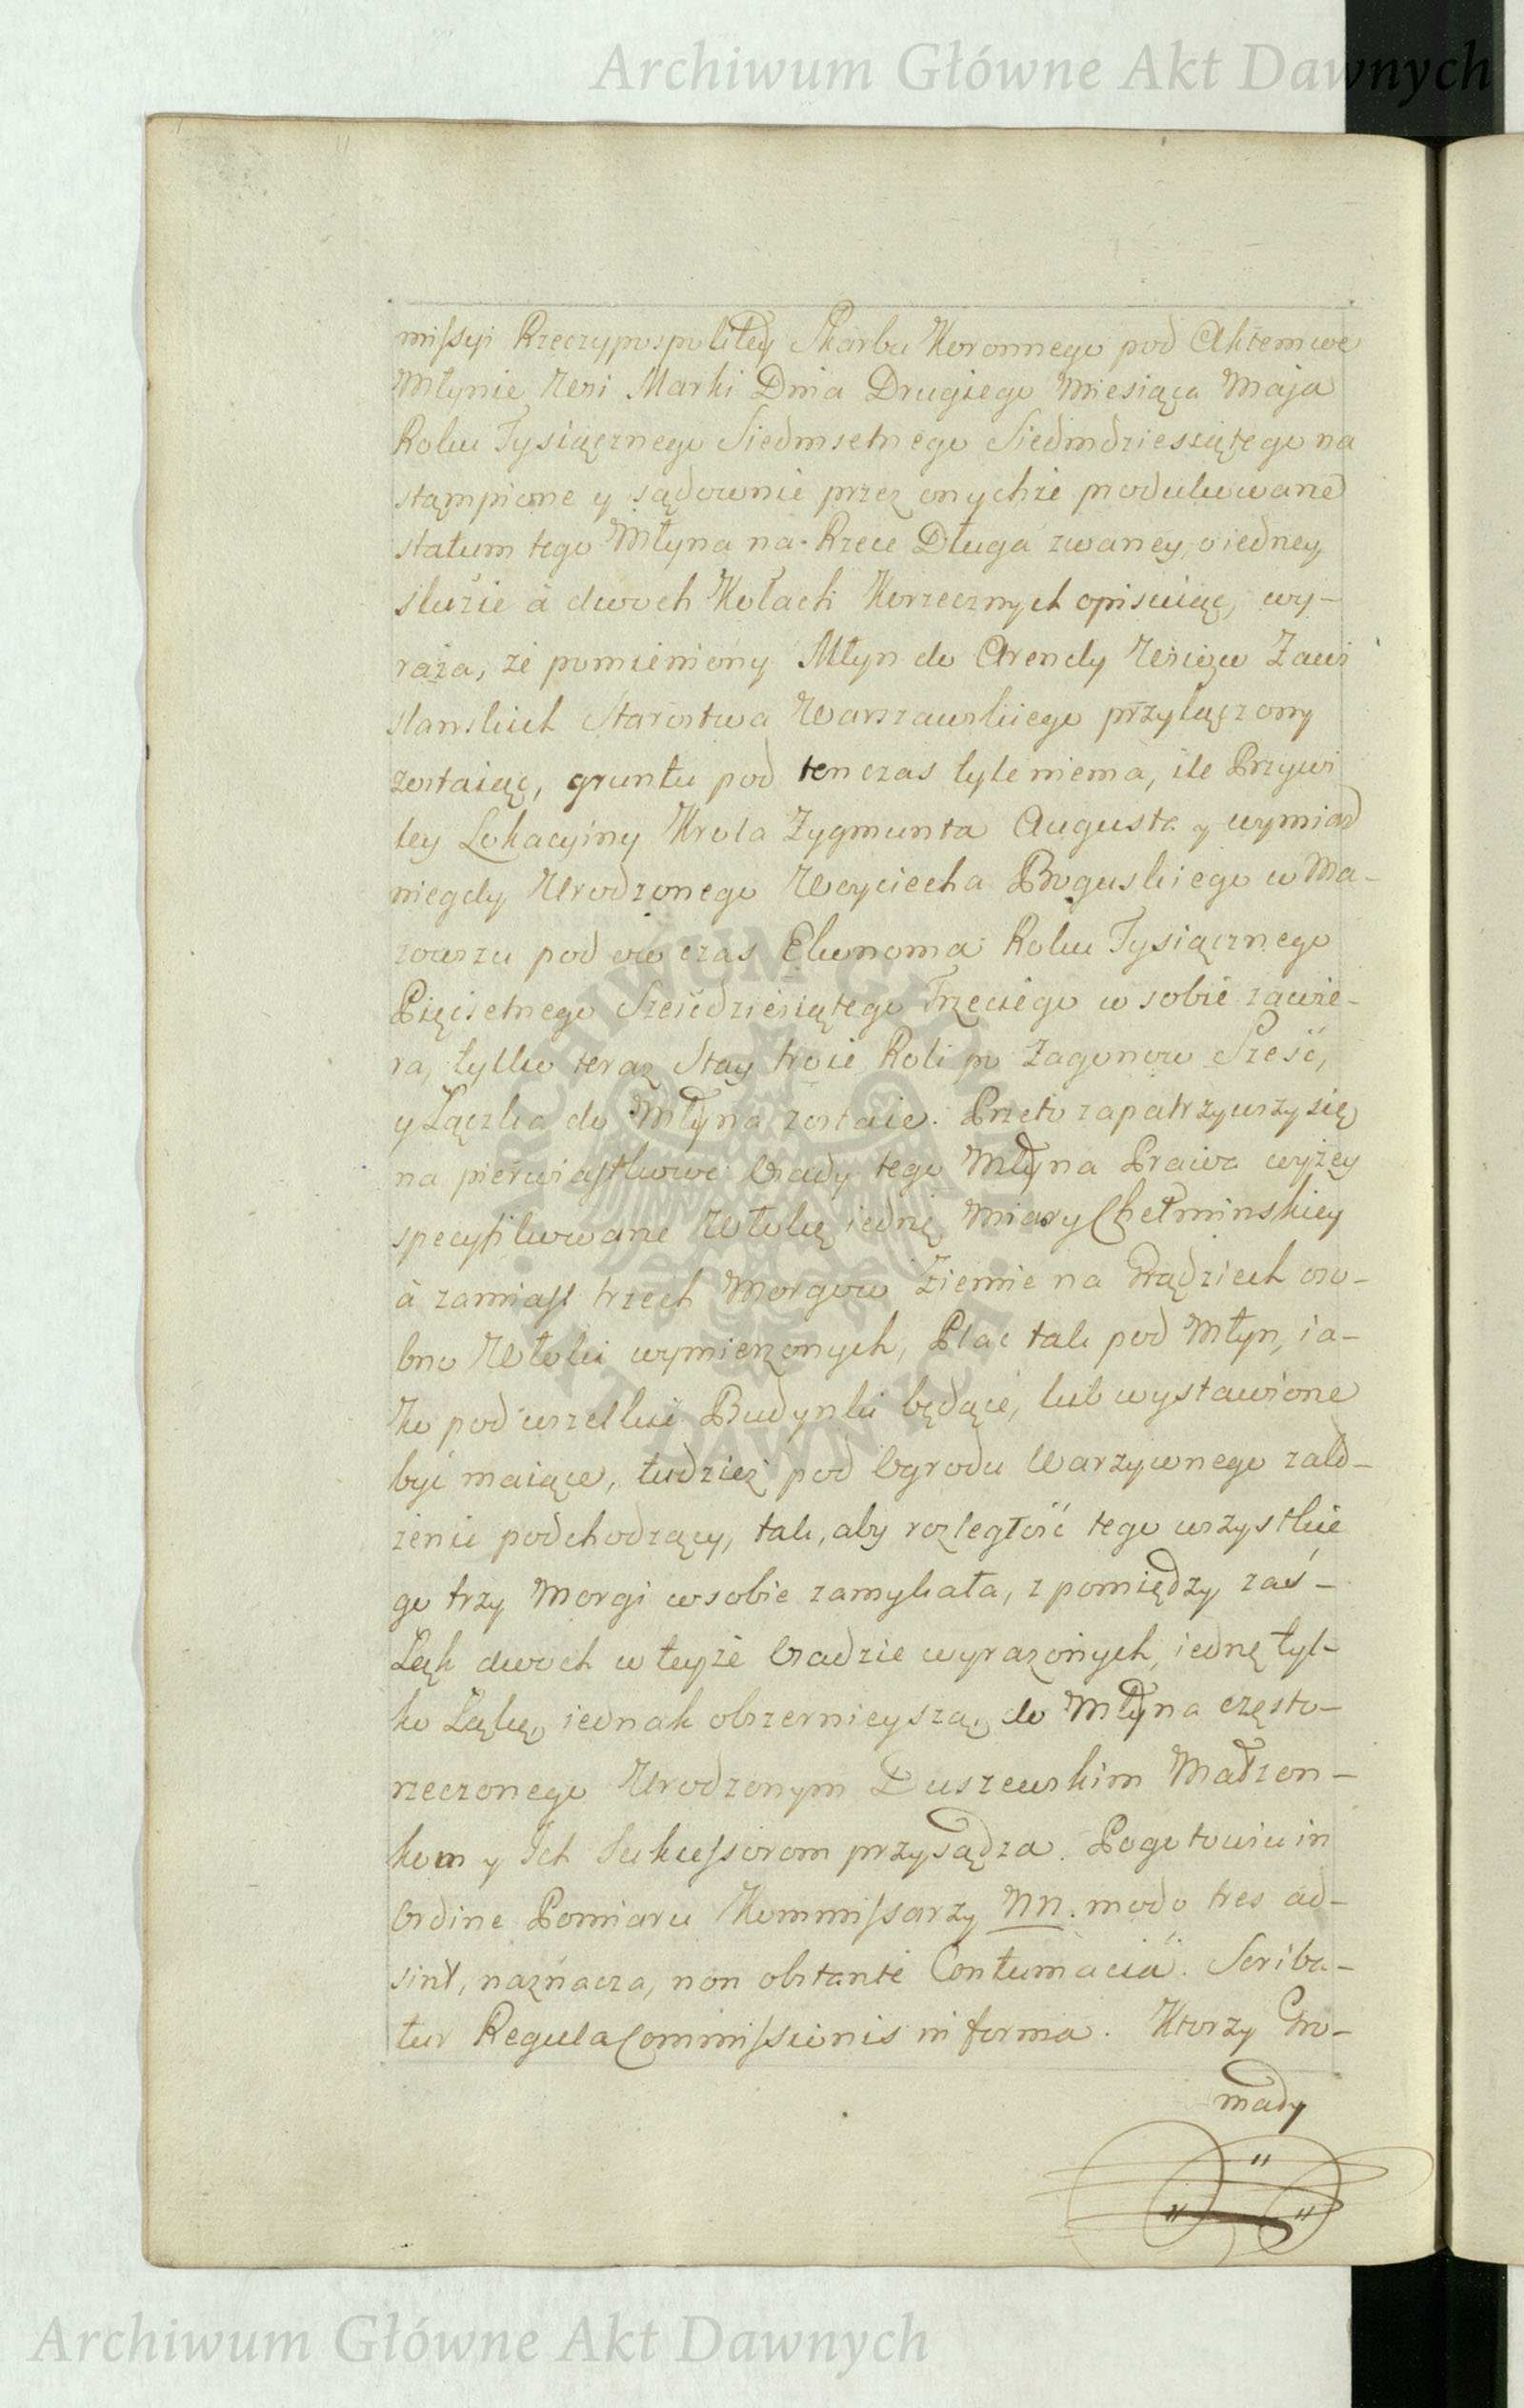 Archiwum Główne Akt Dawnych
missyi Rzeczypospolitey Skarbu Koronnego pod Aktem we
Młynie Wsi Marki Dnia Drugiego Miesiąca Maja
Roku Tysiącznego Siedmsetnego Siedmdziesiątego na
stąmpione y sądownie przez onychże produkowane
statum tego Młyna na Rzece Długa zwaney, o iedney
sluzie á dwoch Kołach Korzecznych opisuiąc, wy-
raża, że pomieniony Młyn do Arendy Wsiow Zawi
slanskich Starostwa Warszawskiego przyłączony
zostaiąc, gruntu pod ten czas tyle niema, ile Przywi
ley Lokacyiny Krola Zygmunta Augusta y wymiar
niegdy Urodzonego Woyciecha Boguskiego w Ma-
zowszu pod ow czas Ekonoma Roku Tysiącznego
Pięcsetnego Sześcdziesiątego Trzeciego w sobie zawie-
ra, tylko teraz Stay troie Roli po Zagonow Sześć,
y Łączka do Młyna zostaie. Przeto zapatrzywszy się
na pierwiastkowe Osady tego Młyna Prawa wyżey
specyfikowane Włokę iednę Miary Chełminskiey
á zamiast trzech Morgow Ziemie na Grądziech oso-
bno Włoki wymierzonych, Plac tak pod Młyn, ia-
ko pod wszelkie Budynki będące, lub wystawione
być maiące, tudzież pod Ogrodu Warzywnego zało-
żenie podchodzący, tak, aby rozległość tego wszystkie
go trzy Morgi w sobie zamykała, z pomiędzy zaś -
Łąk dwoch w teyże Osadzie wyrażonych, iednę tyl-
ko Łąkę, iednak obszernieyszą, do Młyna często-
rzeczonego Urodzonym Duszewskim Małżon-
kom y Ich Sukcessorom przysądza. Pogotowiu in
Ordine Pomiaru Kommissarzy NN. modo tres ad-
sint, naznacza, non obstante Contumacia. Scriba-
tur Regula Commissionis in forma. Ktorzy Gro-
mady
Archiwum Główne Akt Dawnych